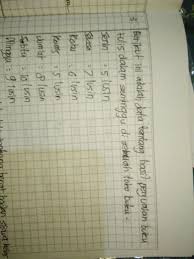 3. Berikut ini adalah data tentang hasil penjualan buku
tulis dalam seminggu di sebuah toko buku.
Senin = 5 lusin
Selasa = 7 lusin
Rabu = 6 lusin
Kamis = 5 lusin
Jumat = 8 lusin
Sabtu = 10 lusin
Minggu = 9 lusin